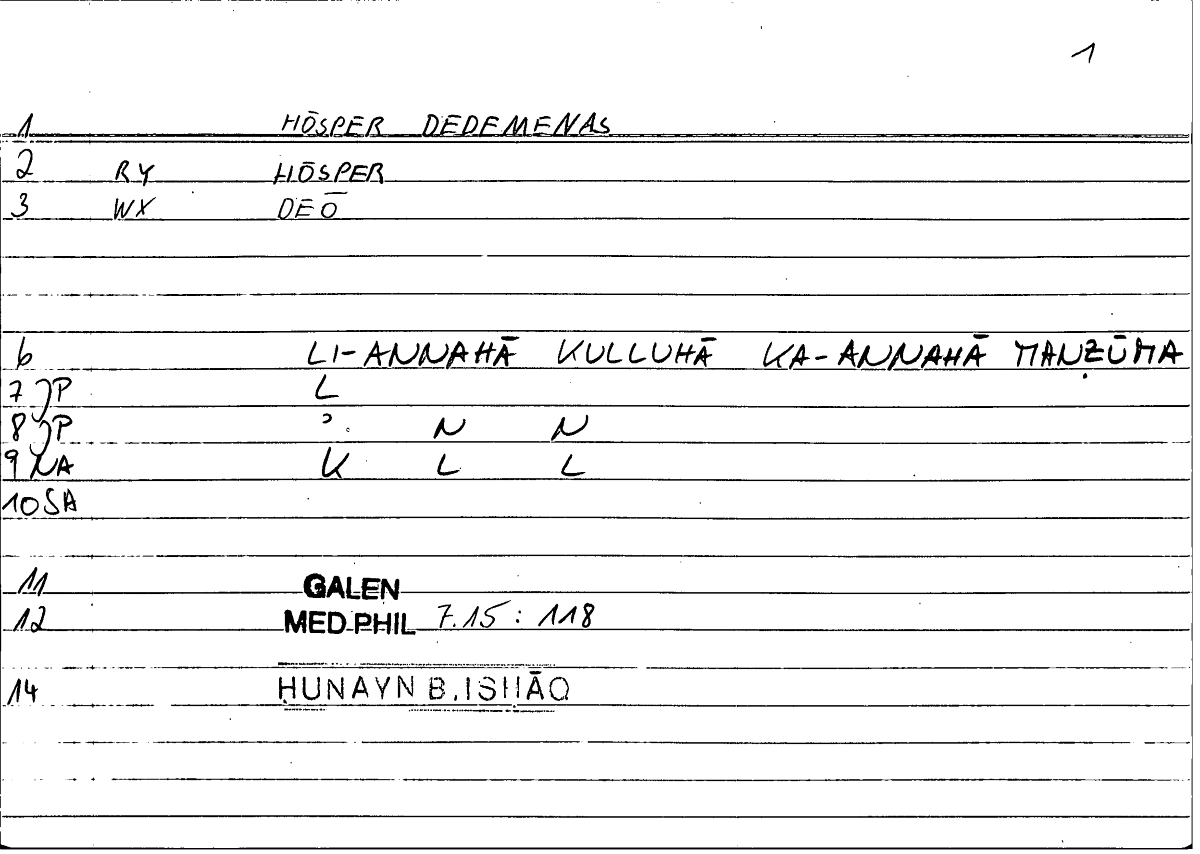 1
1 HŌSPER DEDEMENAS
2 RY HŌSPER
3 WX DEŌ
6 LI-ANNAHĀ KULLUHĀ KA-ANNAHĀ MANẒŪMA
7 JP L
8 JP ʾ N N
9 NA K L L
10 SA
11 GALEN
12 MED PHIL 7.15 : 118
14 ḤUNAYN B. ISḤĀQ